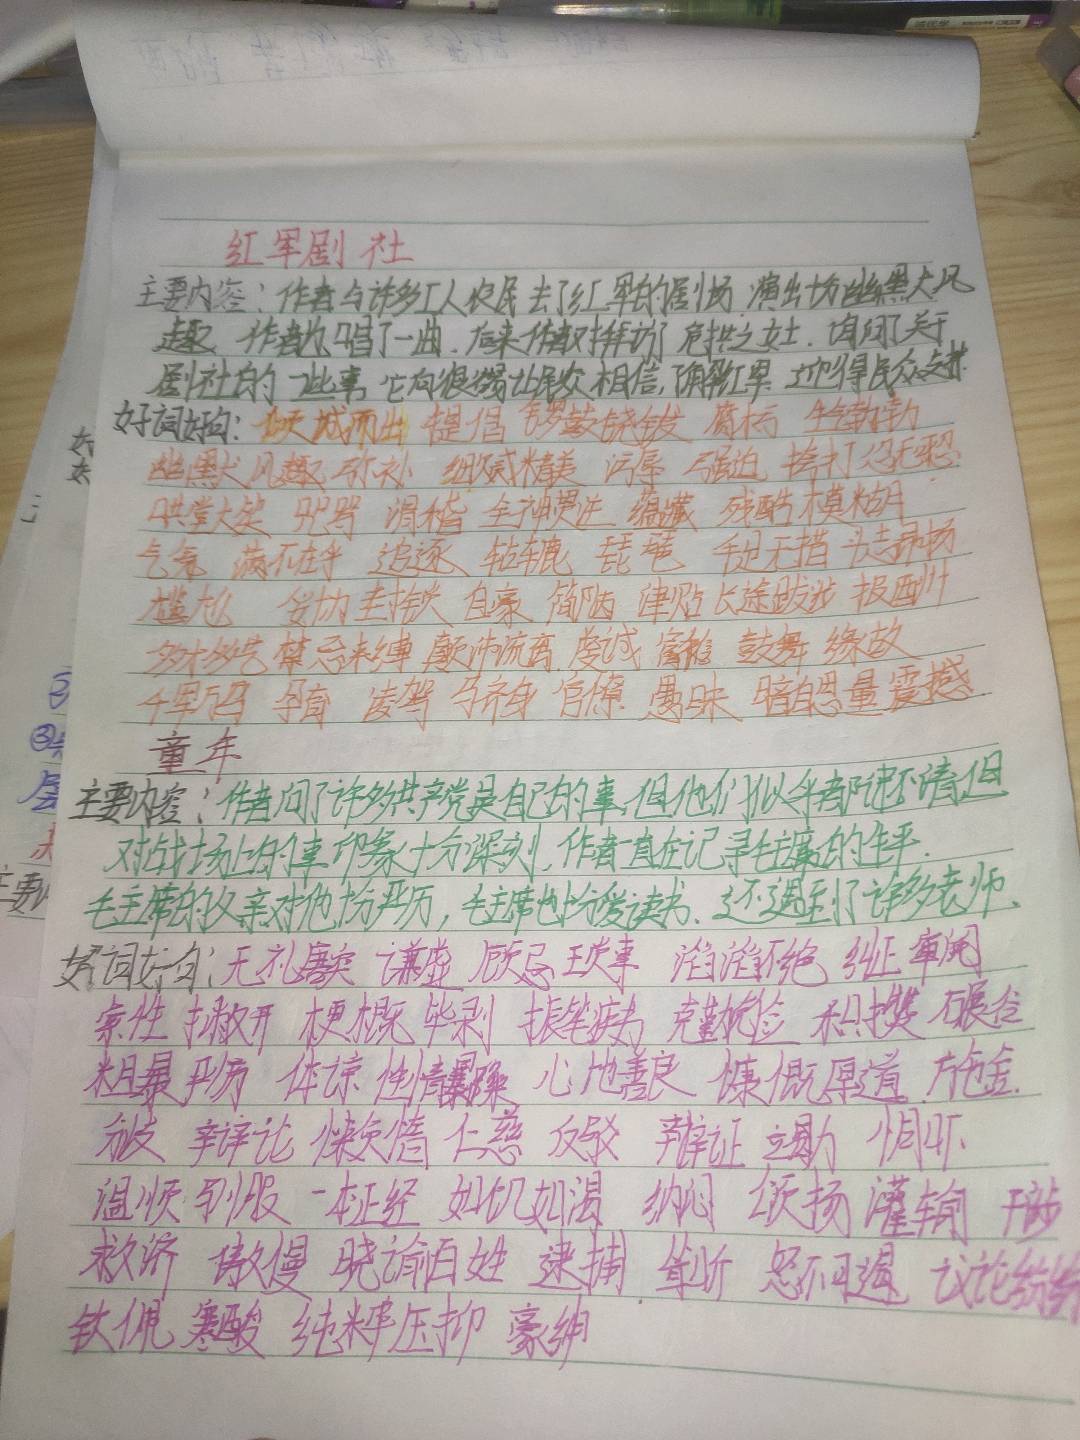 红军剧社
主要内容：作者与许多工人农民去了红军的剧场.演出十分幽默大风
趣.作者也唱了一曲.后来作者对拜访了危拱之女士.询问了关于
剧社的一些事.它向很多让民众相信,了解红军.迎得民众支持.
好词好句：倾城而出 提倡 锣鼓铙钹 腐朽 生气勃勃
幽默风趣 弥补 细致精美 污辱 强迫 捨打 忍无忍
哄堂大笑 咒骂 滑稽 全神贯注 蕴藏 残酷 模糊
气氛 满不在乎 追逐 轱辘 琵琶 手足无措 趾高气扬
尴尬 妥协 卖铁 自豪 简陋 津贴 长途跋涉 报酬
多才多艺 禁忌 束缚 颠沛流离 虔诚 窝棚 鼓舞 缘故
千军万马 孕育 凌驾 官僚 愚昧 暗自思量 震撼
童年
主要内容：作者问了许多共产党员自己的事.但他们似乎都记不清,但
对战场上的事印象十分深刻.作者一直在记录毛主席的生平.
毛主席的父亲对他十分严历，毛主席也十分爱读书.还遇到了许多老师.
好词好句：无礼唐突 谦虚 顾忌 琐事 滔滔不绝 纠正 审阅
索性 抛开 梗概 毕剥 振笔疾书 克勤克俭 积攒 碾谷
粗暴 严厉 体谅 性情暴躁 心地善良 慷慨厚道
辩论 懒惰 仁慈 反驳 辩证 恫吓
温顺 驯服 一本正经 如饥如渴 纳闷 颂扬 灌输 干涉
救济 傲慢 晓谕百姓 逮捕 耸听 怒不可遏 议论纷纷
钦佩 寒酸 纯粹 压抑 豪绅